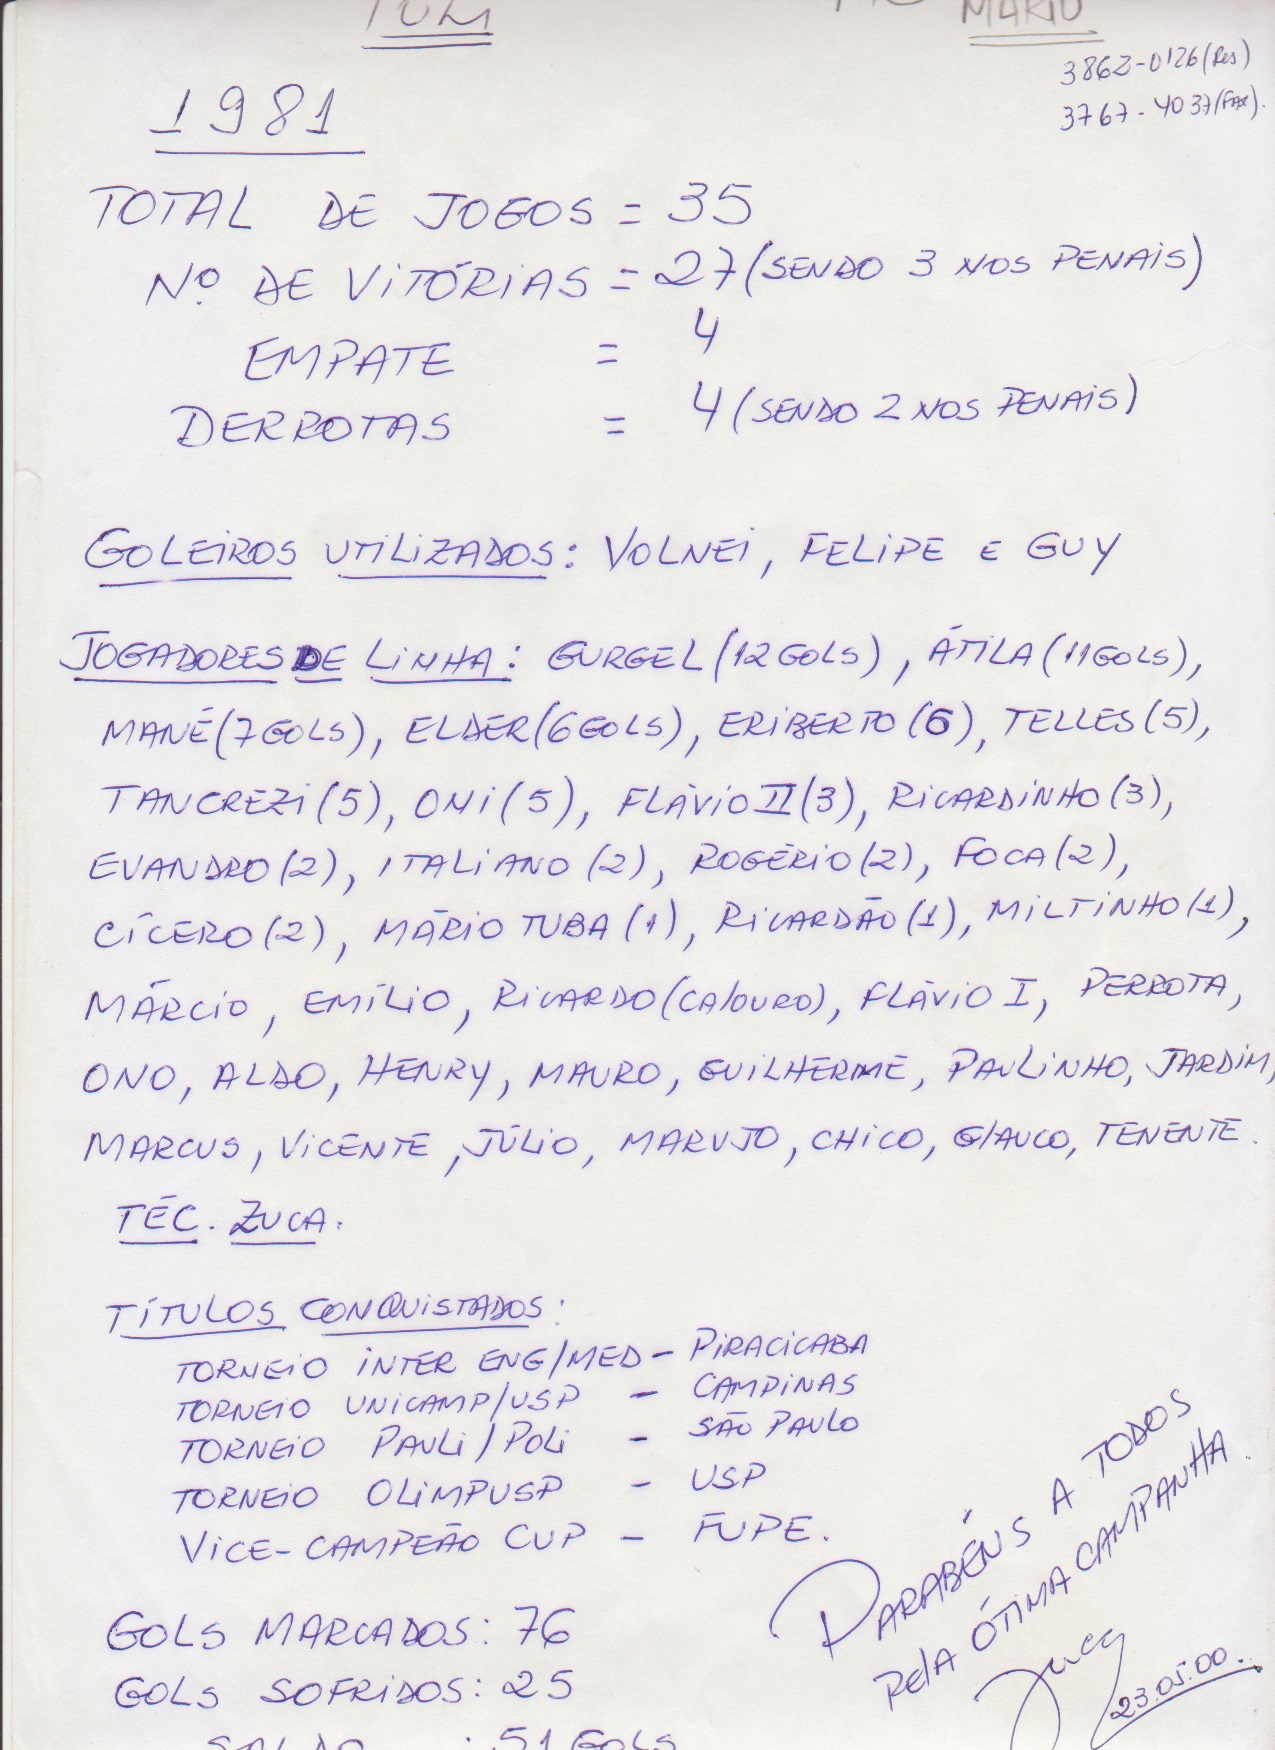 MÁRIO
3862-0126 (Res)
3767-4037 (FAX).
1981
TOTAL DE JOGOS = 35
Nº DE VITÓRIAS = 27 (SENDO 3 NOS PENAIS)
EMPATE = 4
DERROTAS = 4 (SENDO 2 NOS PENAIS)
GOLEIROS UTILIZADOS: VOLNEI, FELIPE E GUY
JOGADORES DE LINHA: GURGEL (12 GOLS), ÁTILA (11 GOLS),
MANÉ (7 GOLS), ELDER (6 GOLS), ERIBERTO (6), TELLES (5),
TANCREZI (5), OMI (5), FLÁVIO II (3), RICARDINHO (3),
EVANDRO (2), ITALIANO (2), ROGÉRIO (2), FOCA (2),
CÍCERO (2), MÁRIO TUBA (1), RICARDÃO (1), MILTINHO (1),
MÁRCIO, EMÍLIO, RICARDO (CALOURO), FLÁVIO I, PERROTA,
ONO, ALDO, HENRY, MAURO, GUILHERME, PAULINHO, JARDIM,
MARCUS, VICENTE, JÚLIO, MARUJO, CHICO, GLAUCO, TENENTE.
TÉC. ZUCA.
TÍTULOS CONQUISTADOS:
TORNEIO INTER ENG/MED - PIRACICABA
TORNEIO UNICAMP/USP - CAMPINAS
TORNEIO PAULI/POLI - SÃO PAULO
TORNEIO OLIMPUSP - USP
VICE-CAMPEÃO CUP - FUPE.
GOLS MARCADOS: 76
GOLS SOFRIDOS: 25
SALDO : 51 GOLS
PARABÉNS A TODOS
PELA ÓTIMA CAMPANHA.
Zuca
23.05.00.